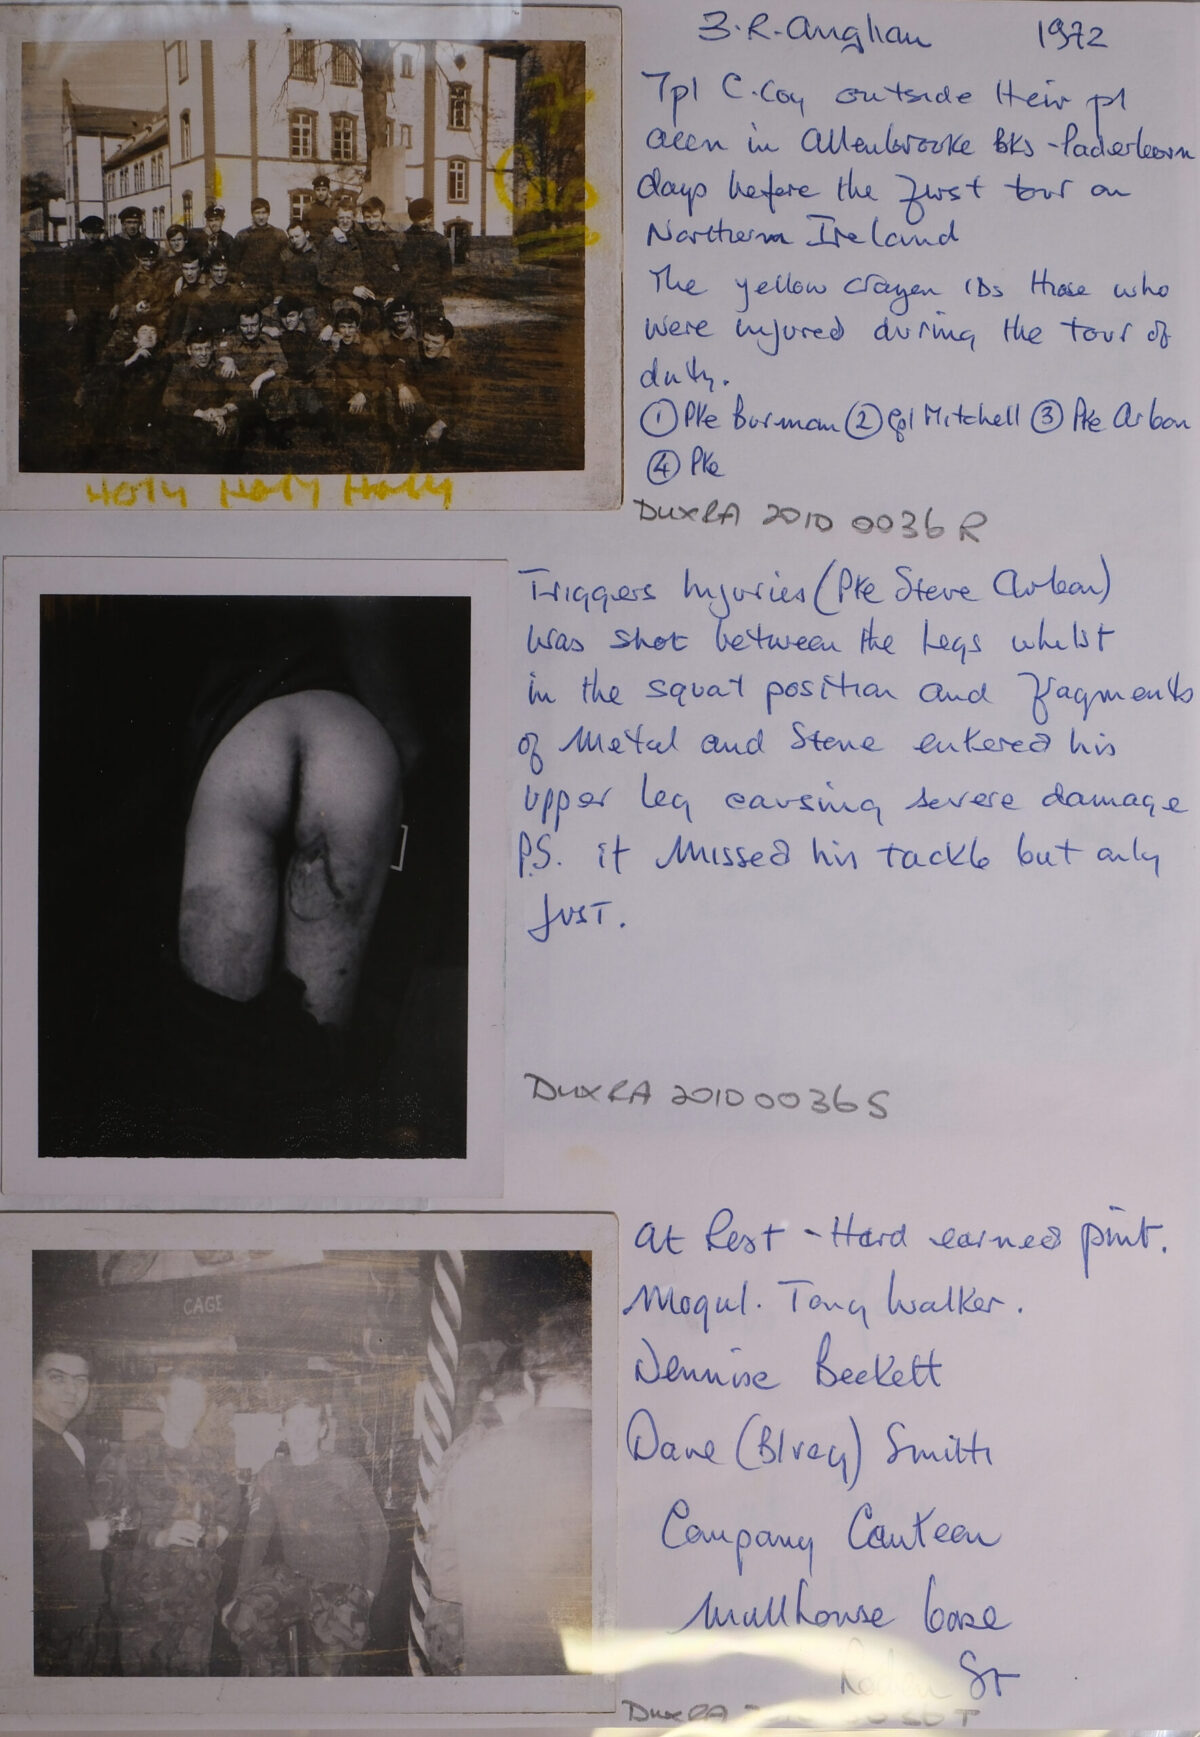 3.R.Anglian 1972
7pl C.Coy outside their pl
accn in Allenbrooke BKs - Paderborn
days before the first tour on
Northern Ireland
The yellow crayen IDs those who
were injured during the tour of
duty.
① Pte Burman ② Cpl Mitchell ③ Pte Arbon
④ Pte
DUXRA 2010 0036 R
HOly HoLy HoLy
Triggers Injuries (Pte Steve Arbon)
was shot between the legs whilst
in the squat position and fragments
of Metal and Stone entered his
upper leg causing severe damage
P.S. it Missed his tackle but only
JUST.
DUXRA 2010 0036 S
At Rest - Hard earned pint.
CAGE
Mogul. Tony Walker.
Dennise Beckett
Dave Smith
Company Canteen
Mullhouse base
Roden St
DUXRA